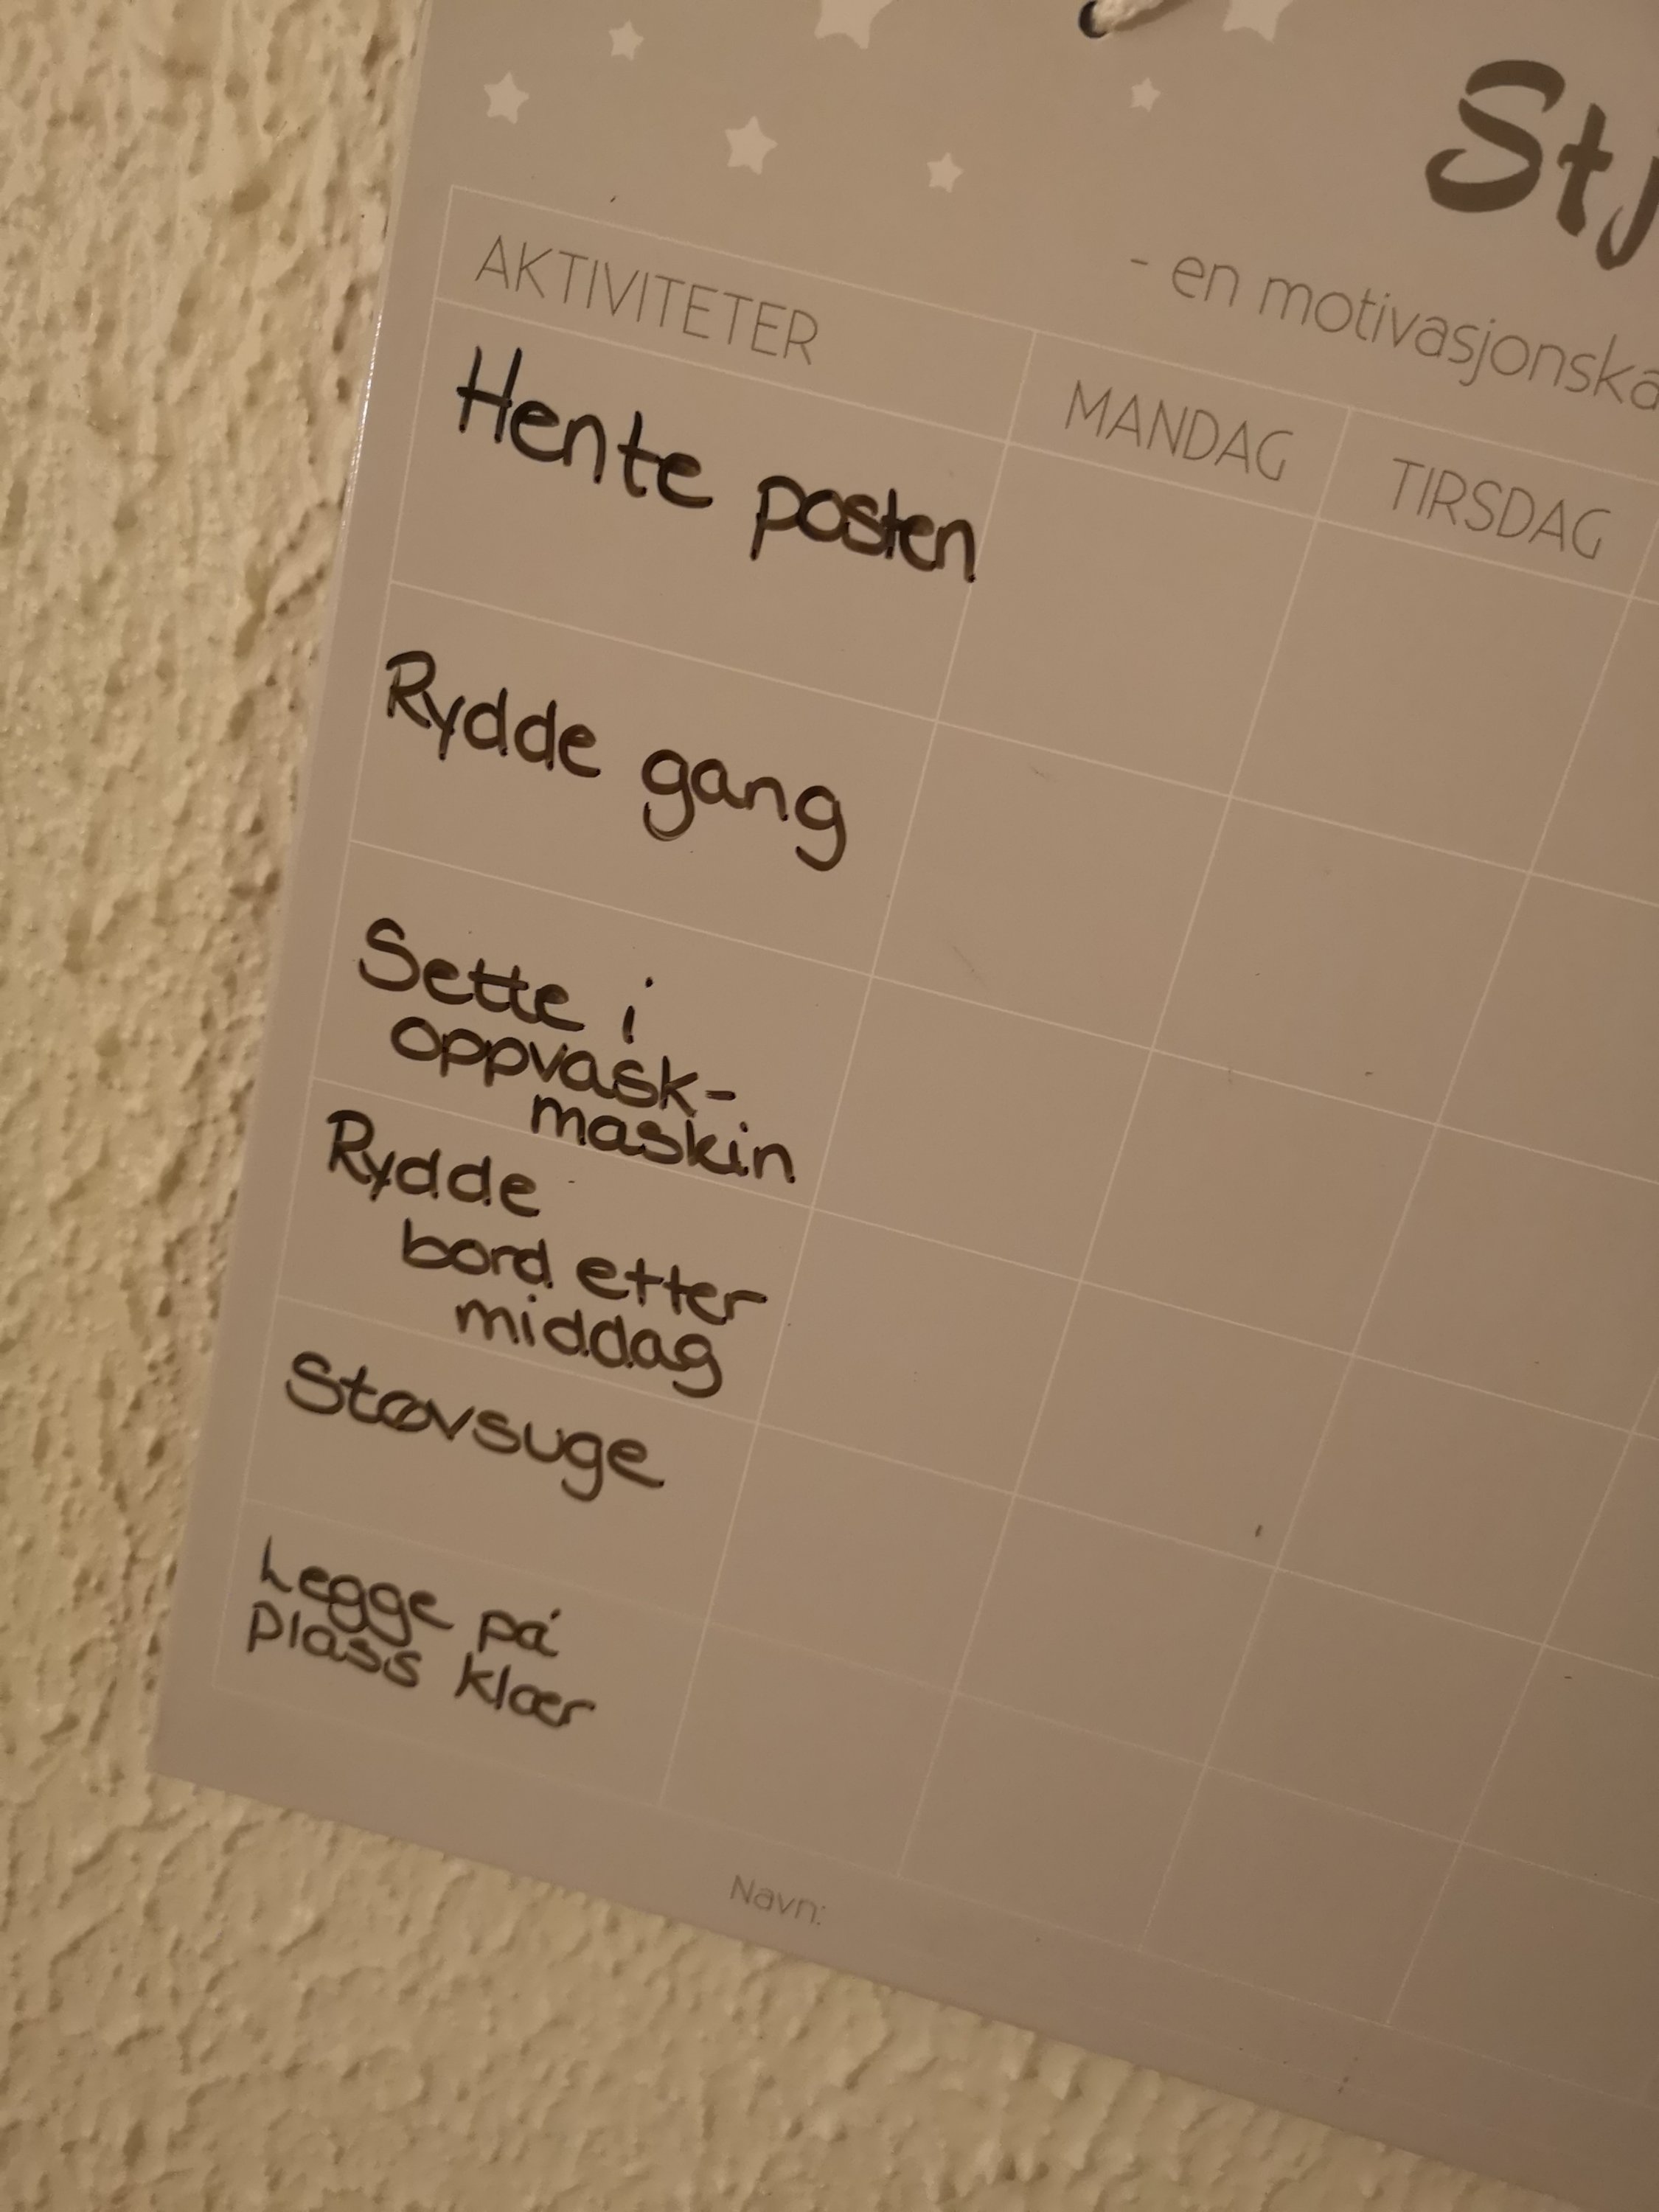 - en
AKTIVITETER
MANDAG
TIRSDAG
Hente posten
Rydde gang
Sette i
oppvask-
maskin
Rydde
bord etter
middag
Støvsuge
Legge på
plass klær
Navn: